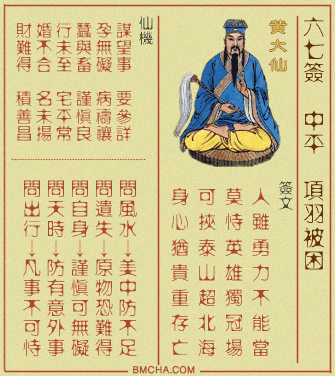 六七簽 中平 項羽被困
黄大仙
簽文
人雖勇力不能當
莫恃英雄獨冠場
可挾泰山超北海
身心猶貴重存亡
仙機
謀望事 要參詳
孕無礙 病禱禳
蠶與畜 謹慎良
行未至 宅平常
婚不合 名未揚
財難得 積善昌
問風水→美中防不足
問遺失→原物恐難得
問自身→謹慎可無礙
問天時→防有意外事
問出行→凡事不可恃
BMCHA.COM